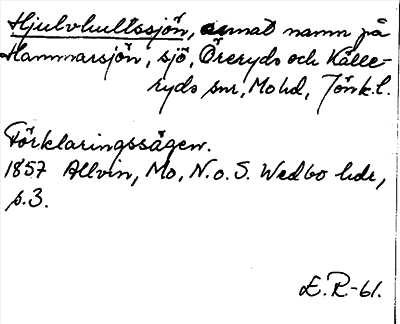 Hjulvhultssjön, annat namn på
Hammarsjön, sjö, Öreryds och Källe-
ryds snr, Mo hd, Jönk.l.
Förklaringssägen.
1857 Allvin, Mo, N.o.S. Wedbo hdr,
s.3.
E.R.-61.